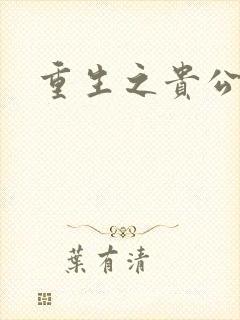 重生之貴公
葉有清